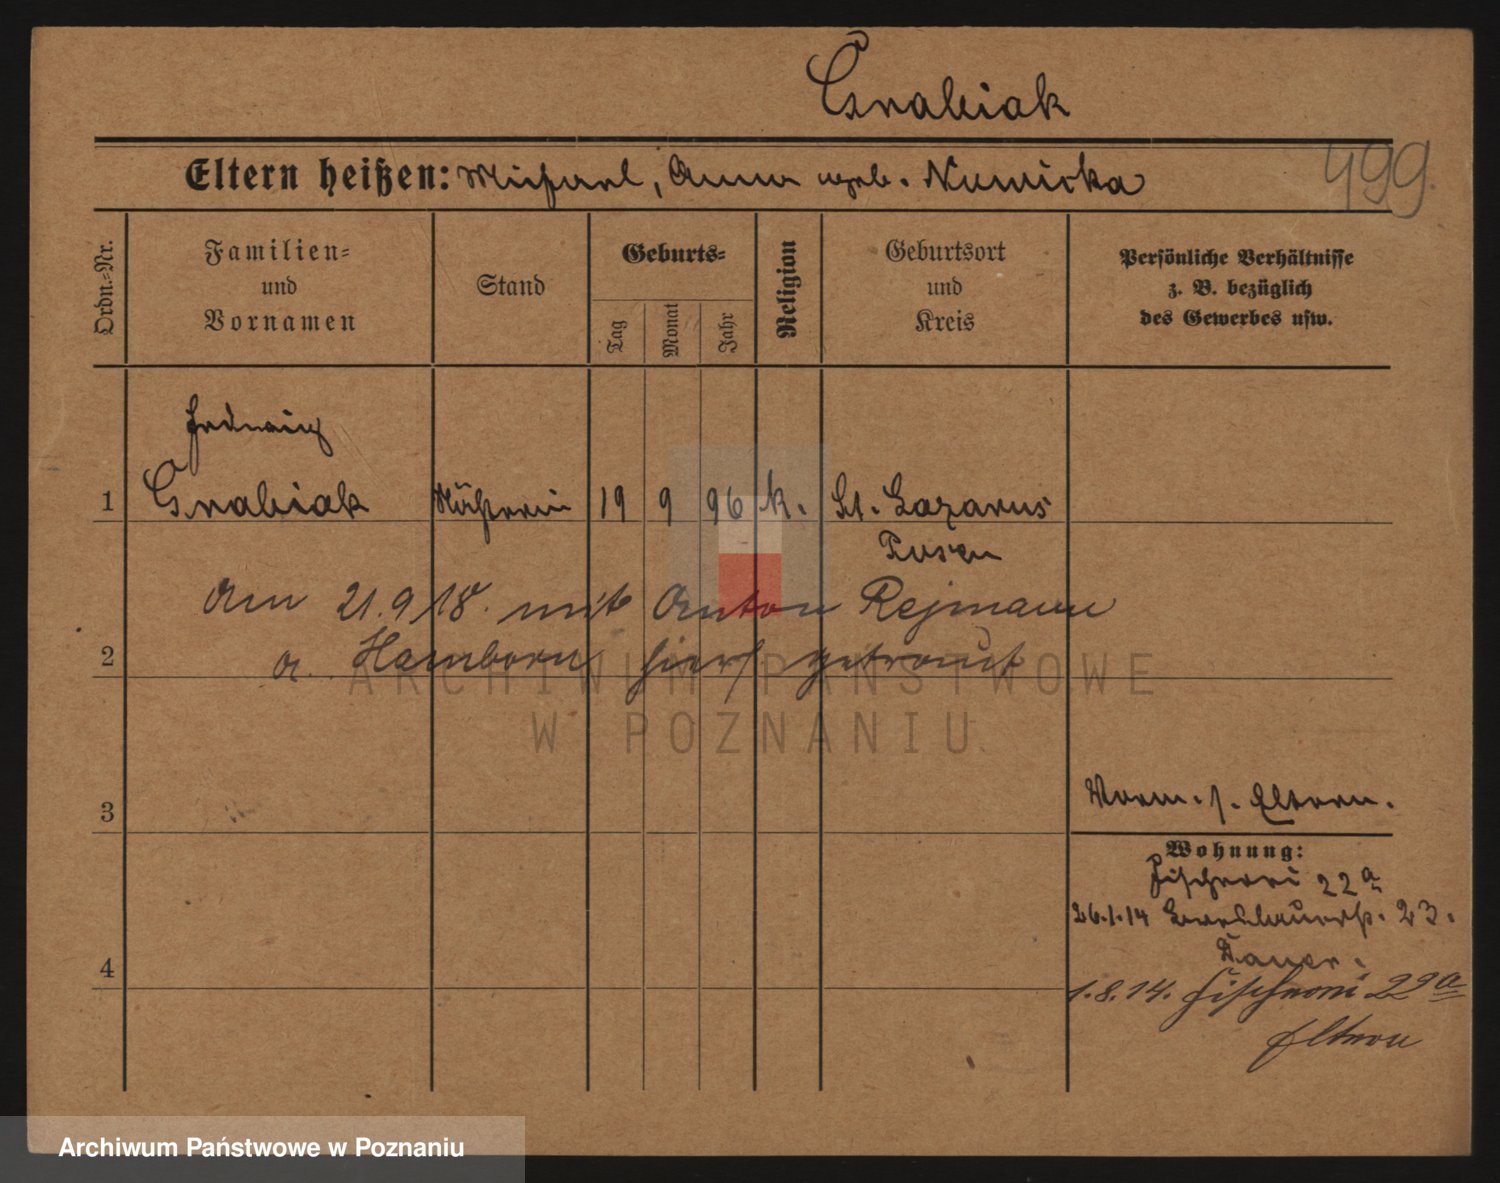 Grabiak
Eltern heißen: Michael, Anna geb. Nowicka
499.
Ordn.-Nr.
Familien-
und
Vornamen
Stand
Geburts-
Tag
Monat
Jahr
Religion
Geburtsort
und
Kreis
Persönliche Verhältnisse
z. B. bezüglich
des Gewerbes usw.
Hedwig
1 Grabiak Näherin 19 9 96 k. St. Lazarus
Posen
Am 21.9.18. mit Anton Rejmann
2 a. Hamborn hier getraut
3 Vorm. s. Eltern.
Wohnung:
Fischerei 22a
26.1.14 23.
4 Bauer.
1.8.14. Fischerei 22a
Eltern
ARCHIWUM PAŃSTWOWE
W POZNANIU
Archiwum Państwowe w Poznaniu